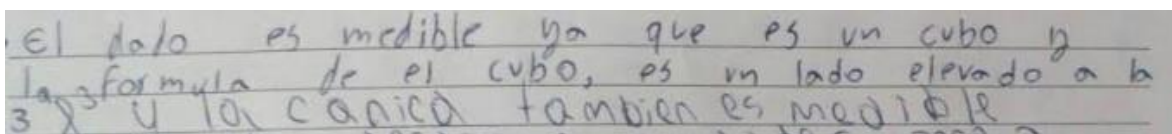 El dado es medible ya que es un cubo y
la formula de el cubo, es un lado elevado a la
3 y la canica tambien es medible